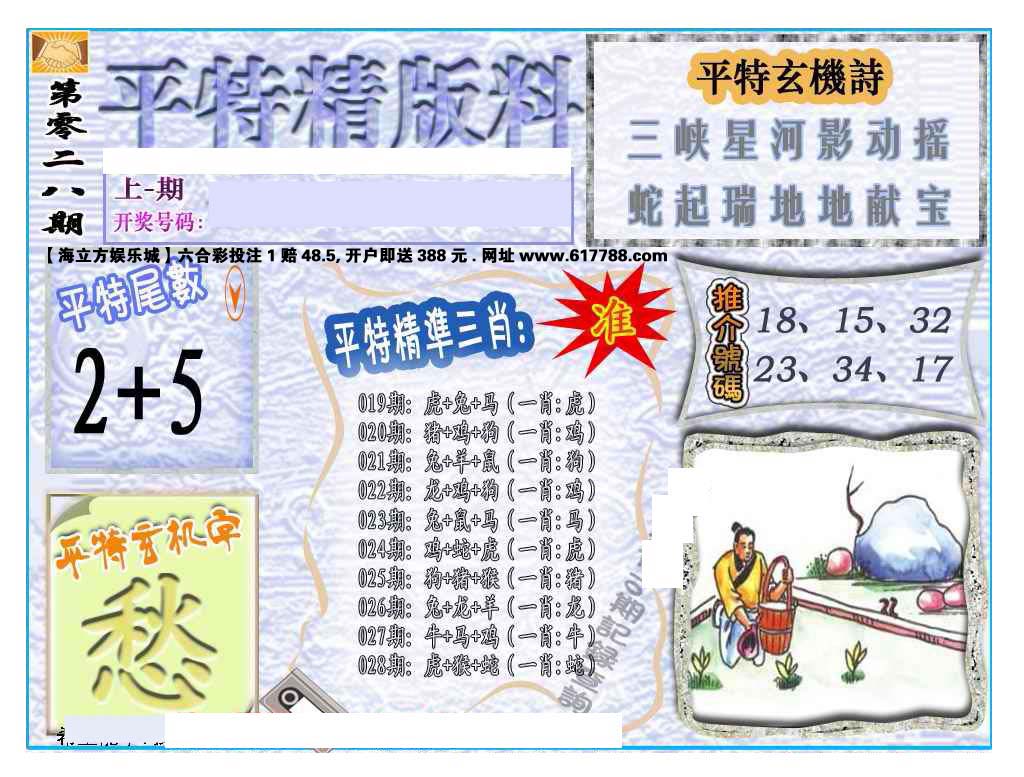 第零二八期
平特精版料
上-期
开奖号码:
平特玄機詩
三峡星河影动摇
蛇起瑞地地献宝
【海立方娱乐城】六合彩投注1赔48.5,开户即送388元.网址www.617788.com
平特尾數
2+5
平特精準三肖:
准
推介號碼
18、15、32
23、34、17
019期: 虎+兔+马(一肖:虎)
020期: 猪+鸡+狗(一肖:鸡)
021期: 兔+羊+鼠(一肖:狗)
022期: 龙+鸡+狗(一肖:鸡)
023期: 兔+鼠+马(一肖:马)
024期: 鸡+蛇+虎(一肖:虎)
025期: 狗+猪+猴(一肖:猪)
026期: 兔+龙+羊(一肖:龙)
027期: 牛+马+鸡(一肖:牛)
028期: 虎+猴+蛇(一肖:蛇)
期記錄查詢
平特玄机字
愁